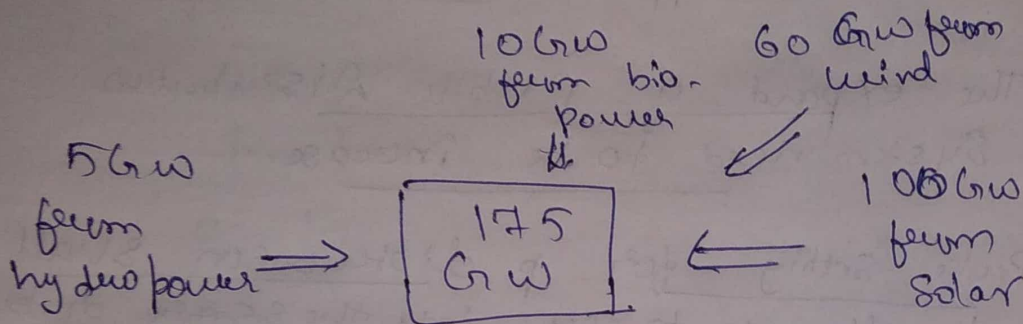 10 GW
from bio-
power
60 GW from
wind
5 GW
from
hydropower
175
GW
100 GW
from
Solar